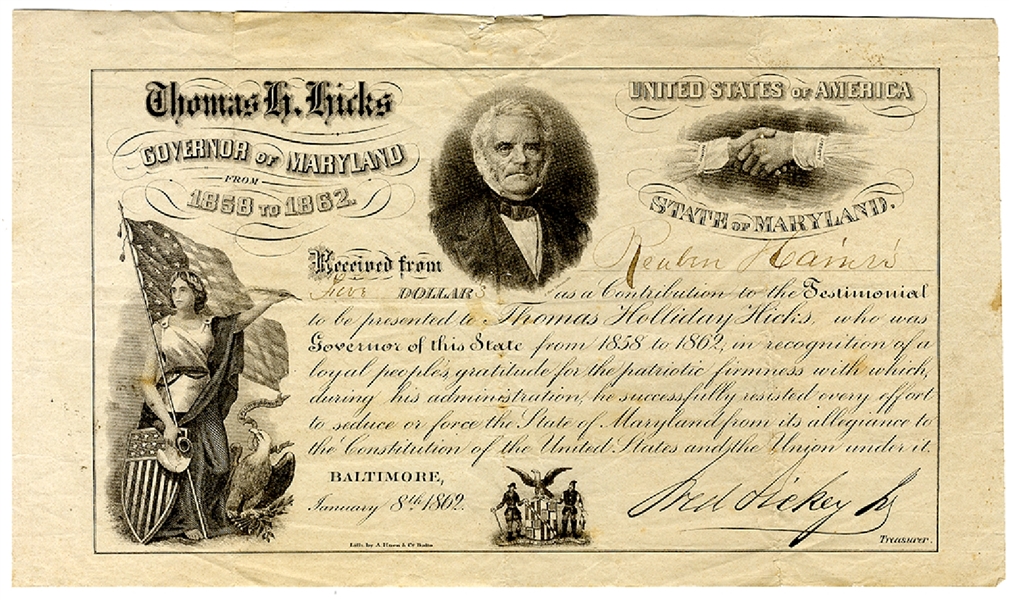 Thomas H. Hicks
GOVERNOR OF MARYLAND
FROM
1858 TO 1862.
UNITED STATES OF AMERICA
STATE OF MARYLAND.
Received from Reuben
Five DOLLARS as a Contribution to the Testimonial
to be presented to Thomas Holliday Hicks, who was
Governor of this State from 1858 to 1862, in recognition of a
loyal people's gratitude for the patriotic firmness with which,
during his administration, he successfully resisted every effort
to seduce or force the State of Maryland from its allegiance to
the Constitution of the United States and the Union under it.
BALTIMORE,
January 8th 1862.
Lith. by A. Hoen & Co. Balto.
Treasurer.